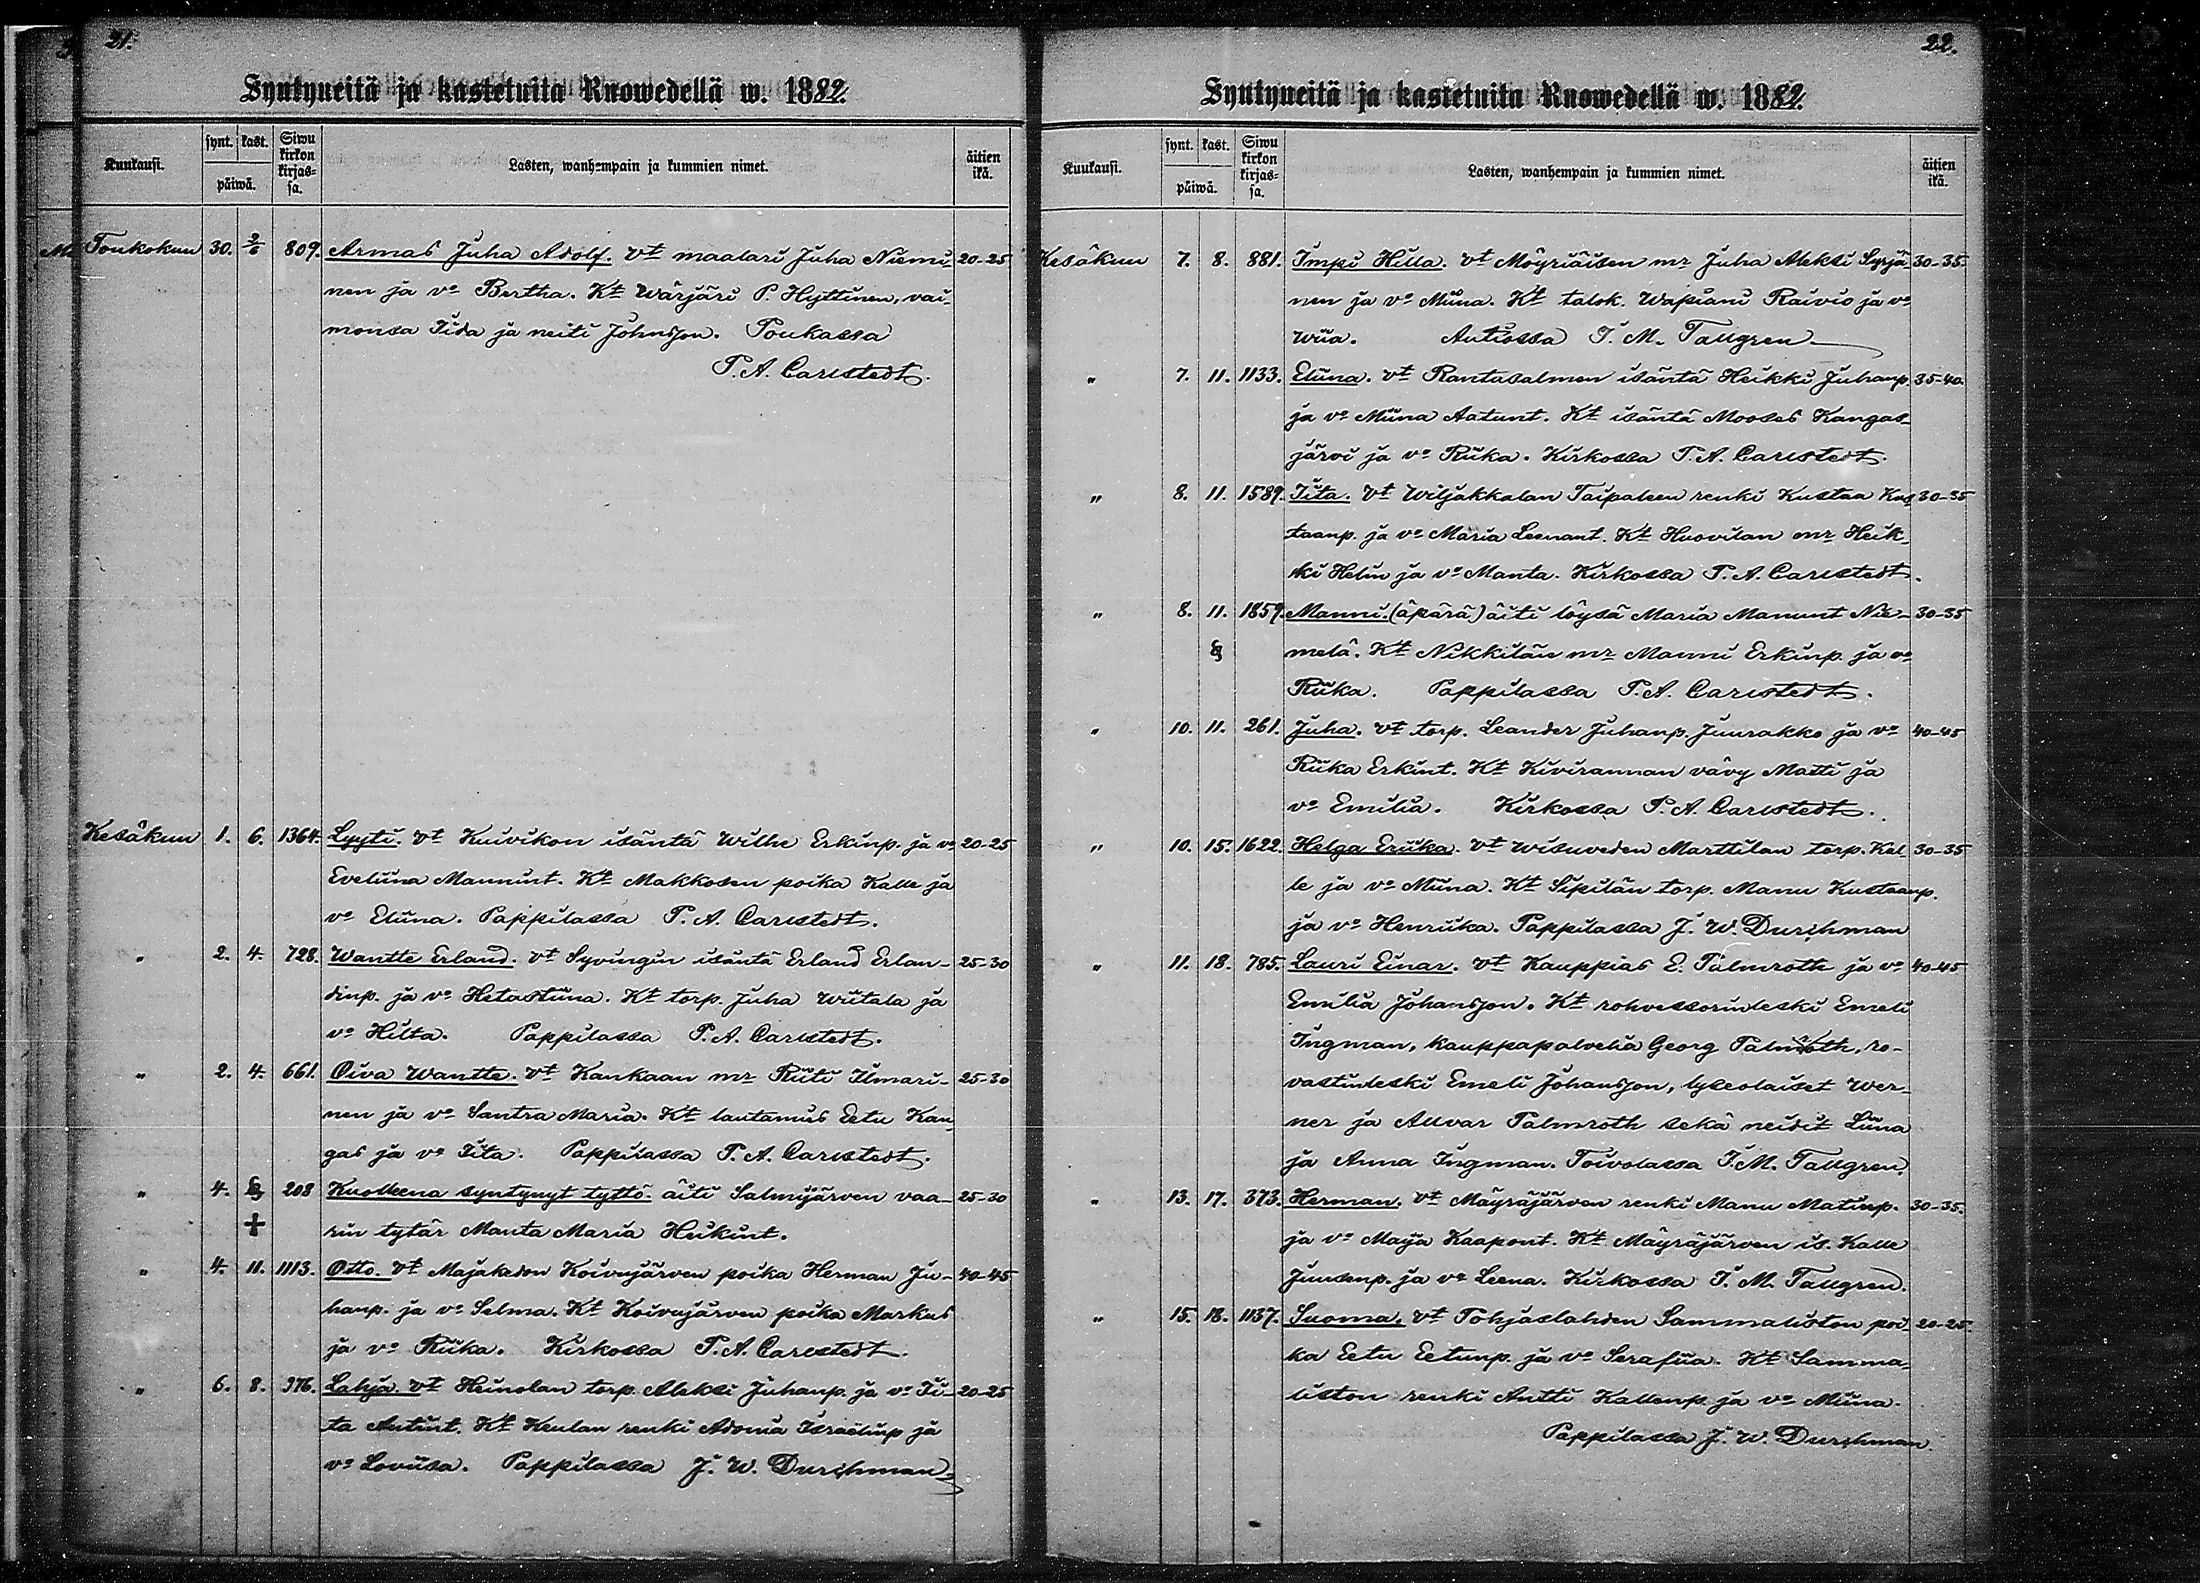 21.
Syntyneitä ja kastetuita Ruowedellä w. 1882.
Kuukausi. synt. kast. päiwä. Siwu kirkon kirjas=sa. Lasten, wanhempain ja kummien nimet. äitien ikä.
Toukokuu 30. 9/6 809. Armas Juha Adolf. Vt maalari Juha Niemi- 20-25
nen ja vo Bertha. Kt Wärjäri P. Hyttinen, vai-
monsa Iida ja neiti Johnsson. Poukassa
T. A. Carlstedt.
Kesäkuu 1. 6. 1364. Lyyti. Vt Kuivikon isäntä Wilhe Erkinp. ja vo 20-25
Eveliina Mannint. Kt Makkosen poika Kalle ja
vo Eliina. Pappilassa T. A. Carlstedt.
" 2. 4. 728. Wantte Erland. Vt Syvingin isäntä Erland Erlan- 25-30
dinp. ja vo Hetastiina. Kt torp. Juha Wiitala ja
vo Hilta. Pappilassa T. A. Carlstedt.
" 2. 4. 661. Oiva Wantte. Vt Kankaan mr Riiti Ilmari- 25-30
nen ja vo Santra Maria. Kt lautamies Eetu Kan-
gas ja vo Iita. Pappilassa T. A. Carlstedt.
" 4. 208 Kuolleena syntynyt tyttö. äiti Salmijärven vaa- 25-30
† rin tytär Manta Maria Heikint.
" 4. 11. 1113. Otto. Vt Majakadon Koivujärven poika Herman Ju- 40-45
hanp. ja vo Selma. Kt Koivujärven poika Markus
ja vo Riika. Kirkossa T. A. Carlstedt.
" 6. 8. 376. Lahja. Vt Heinolan torp. Aleksi Juhanp. ja vo Ii- 20-25
ta Antint. Kt Keulan renki Adonia Israelinp ja
vo Loviisa. Pappilassa J. W. Durchman
22.
Syntyneitä ja kastetuita Ruowedellä w. 1882.
Kuukausi. synt. kast. päiwä. Siwu kirkon kirjas=sa. Lasten, wanhempain ja kummien nimet. äitien ikä.
Kesäkuu 7. 8. 881. Impi Hilla. Vt Möyriäisen mr Juha Aleksi Syrjä- 30-35.
nen ja vo Miina. Kt talok. Wapiani Raivio ja vo
Wiia. Autiossa I. M. Tallgren
" 7. 11. 1133. Eliina. Vt Rantasalmen isäntä Heikki Juhanp. 35-40.
ja vo Miina Aatunt. Kt isäntä Mooses Kangas-
järvi ja vo Riika. Kirkossa T. A. Carlstedt.
" 8. 11. 1589. Iita. Vt Wiljakkalan Taipaleen renki Kustaa Kus- 30-35
taanp. ja vo Maria Leenant. Kt Huovilan mr Heik-
ki Helin ja vo Manta. Kirkossa T. A. Carlstedt.
" 8. 11. 1859. Manni. (äpärä) äiti löysä Maria Manunt Nie- 30-35
melä. Kt Nikkilän mr Manni Erkinp. ja vo
Riika. Pappilassa T. A. Carlstedt.
" 10. 11. 261. Juha. Vt torp. Leander Juhanp. Juurakko ja vo 40-45
Riika Erkint. Kt Kivirannan vävy Matti ja
vo Emilia. Kirkossa T. A. Carlstedt.
" 10. 15. 1622. Helga Eriika. Vt Wisuveden Marttilan torp. Kal- 30-35
le ja vo Miina. Kt Sipilän torp. Manu Kustaanp.
ja vo Henriika. Pappilassa J. W. Durchman
" 11. 18. 785. Lauri Einar. Vt Kauppias E. Palmroth ja vo 40-45
Emilia Johansson. Kt rohvessorinleski Emeli
Ingman, kauppapalvelia Georg Palmroth, ro-
vastinleski Emeli Johansson, lyseolaiset Wer-
ner ja Allvar Palmroth sekä neidit Liina
ja Anna Ingman. Toivolassa I. M. Tallgren.
" 13. 17. 373. Herman. Vt Mäyräjärven renki Manu Matinp. 30-35.
ja vo Maija Kaapont. Kt Mäyräjärven is. Kalle
Juusenp. ja vo Leena. Kirkossa I. M. Tallgren.
" 15. 18. 1137. Suoma. Vt Pohjaslahden Sammaliston poi- 20-25.
ka Eetu Eetunp. ja vo Serafiia. Kt Samma-
liston renki Antti Kallenp. ja vo Miina.
Pappilassa J. W. Durchman